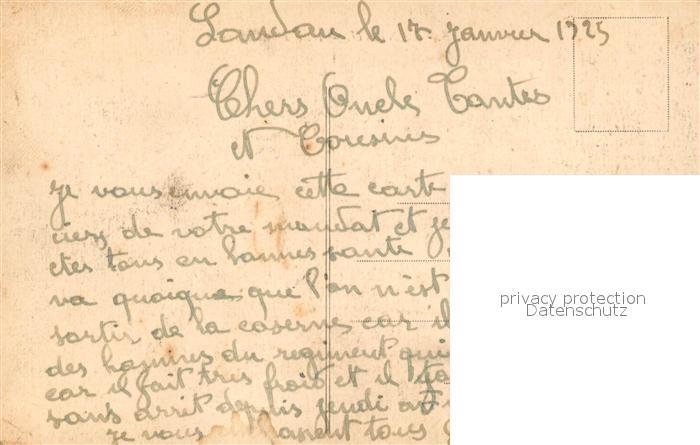 Landau le 17 janvier 1925
Chers Oncle Tantes
et Cousines
je vous envoie cette carte
ciez de votre mandat et je
etes tous en bonnes sante
va quoique que l'on n'est
sortir de la caserne car il
des hommes du regiment qui
car il fait tres froid et il
sans arrit depuis jeudi
je vous tous
privacy protection
Datenschutz